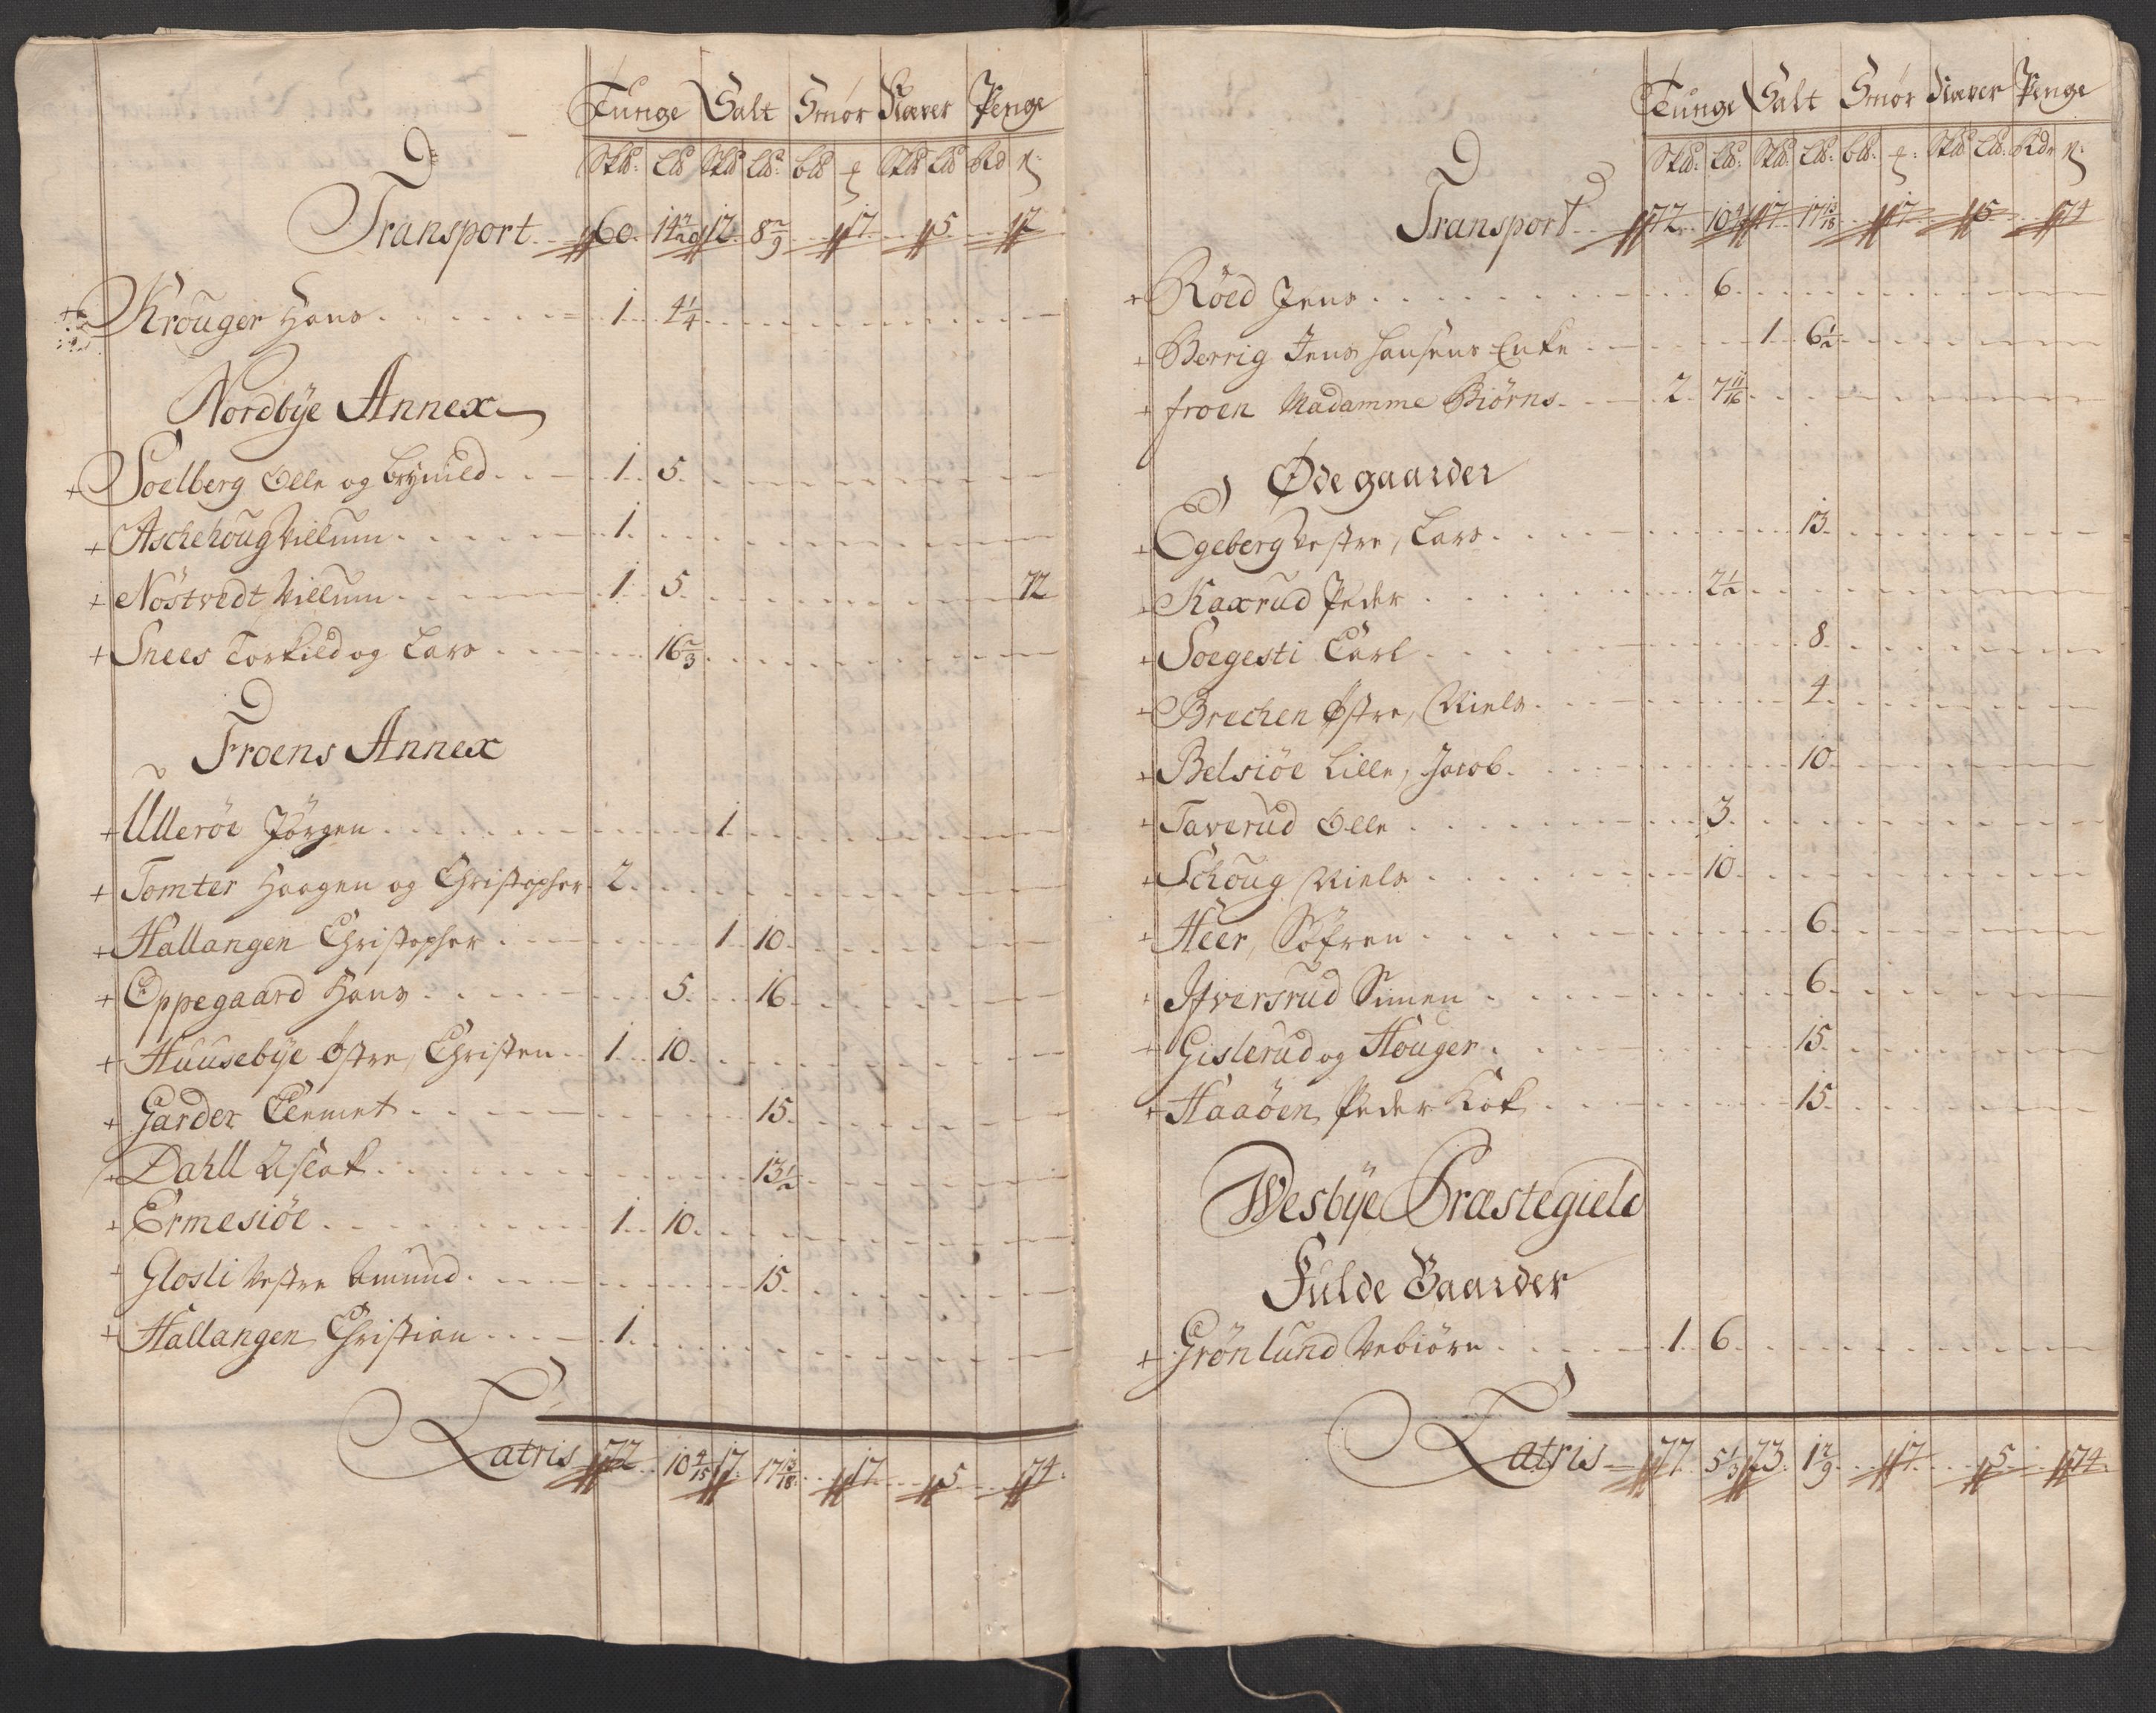 Tunge Salt Smør Penge
Transport 60 12 8 2/9 17 5 12
Krouger Hans 1 4 1/4
Nordbÿe Annex
+ Soelberg Olle og 1 5
+ Aschehoug Villum 1
+ Nöstvedt Villum 1 5 72
+ Snees Torkild og Lars 16 2/3
Froens Annex
+ Ulleröe Jörgen 1
+ Tomter Haagen og Christopher 2
+ Hallangen Christopher 1 10
+ Oppegaard Hans 5 16
+ Huusebÿe Østre, Christen 1 10
+ Garder Clemet 15
+ Dahll Aslak 13 1/2
+ Ermesiöe 1 10
+ Glosli Vestre Amund 15
+ Hallangen Christian 1
Latris 72 10 4/15 17 17 13/18 17 5 74
Tunge Salt Smør Penge
Transport 72 10 4/15 17 17 13/18 17 5 74
+ Röed Jens 6
+ Berrig Jens Hansens Enke 1 6 1/2
+ froen Madamme Biörns 2 7 11/16
Øde gaarder
+ Egeberg Vestre, Lars 13
+ Kaxrud Peder 2 1/2
+ Soegesti Carl 8
+ Brechen Østre, Niels 4
+ Belsiöe Lille, Jacob 10
+ Taverud Olle 3
+ Schoug Niels 10
+ Heer, Söfren 6
+ Ifversrud Simen 6
+ Gislerud og Houger 15
+ Haaöen, Peder Kok 15
Wesbÿe Præstegield
Fulde Gaarder
+ Grönlund Vebiörn 1 6
Latris 77 5 1/3 23 1 2/9 17 5 74